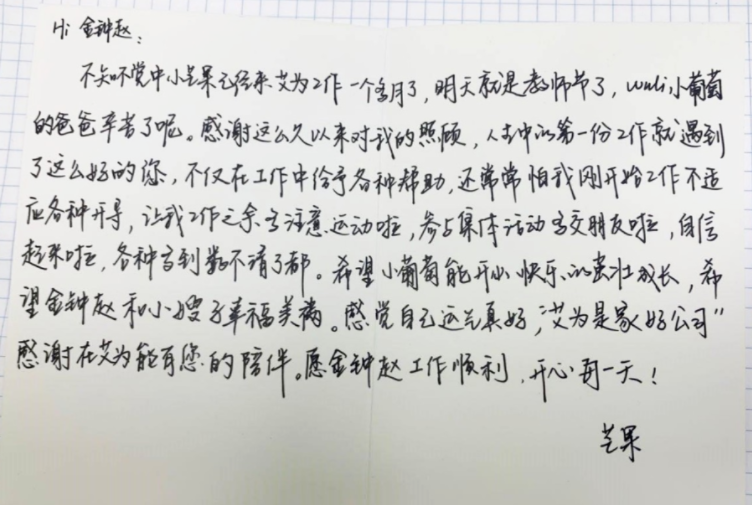 Hi 金钟赵：
不知不觉中小芝果已经来艾为工作一个多月了，明天就是教师节了，wuli小葡萄
的爸爸辛苦了呢。感谢这么久以来对我的照顾，人生中的第一份工作就遇到
了这么好的您，不仅在工作中给予各种帮助，还常常怕我刚开始工作不适
应各种开导，让我工作之余多注意运动啦，参与集体活动多交朋友啦，自信
起来啦，各种多到数不清了都。希望小葡萄能开心快乐的茁壮成长，希
望金钟赵和小嫂子幸福美满。感觉自己运气真好，“艾为是家好公司”
感谢在艾为能有您的陪伴。愿金钟赵工作顺利，开心每一天！
芝果